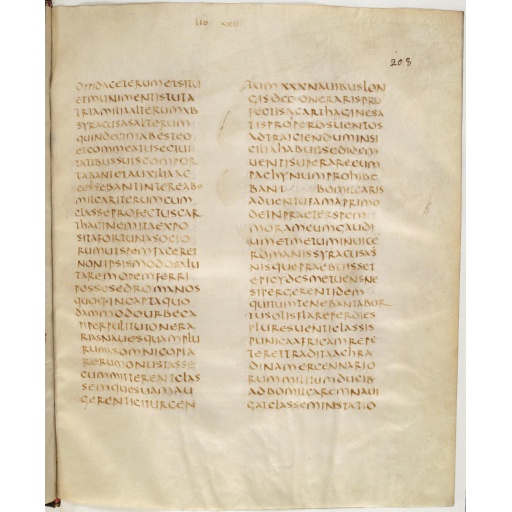 LIB XXU
208
OPPIDACETERUMETSITU
ETMUNIMENTISTUTA
TRIAMILIAALTERUMAB
SYRACUSASALTERUM
QUINDECIMABESTEO
ETCOMMEATUSECIUI
TATIBUSSUISCOMPOR
TABANTETAUXILIAAC
CESSEBANTINTEREABO
MILCARITERUMCUM
CLASSEPROFECTUSCAR
THAGINEMITAEXPO
SITAFORTUNASOCIO
RUMUTSPEMFACERET
NONIPSISMODOSALU
TAREMOPEMFERRI
POSSESEDROMANOS
QUOQINCAPTAQUO
DAMMODOURBECA
PIPERPULITUTONERA
RIASNAUESQUAMPLU
RUMASOMNICOPIA
RERUMONUSTASSE
CUMMITTERENTCLAS
SEMQUESUAMAU
GERENTIGITURCEN
TUMXXXNAUIBUSLON
GISDCCONERARIISPRO
FECTUSACARTHAGINESA
TISPROSPEROSUENTOS
ADTRAICIENDUMINSI
CILIAHABUITSEDIDEM
UENTISUPERAREEUM
PACHYNUMPROHIBE
BANT BOMILCARIS
ADUENTUFAMAPRIMO
DEINPRAETERSPEM
MORAMEUMGAUDI
UMETMETUMINUICE
ROMANISSYRACUSAS
NISQUEPRAEBUISSET
EPICYDESMETUENSNE
SIPERGERENTIDEM
QUITUMTENEBANTABOR
TUSOLISFLAREPERDIES
PLURESUENTICLASSIS
PUNICAAFRICAMREPE
TERETTRADITAACHRA
DINAMERCENNARIO
RUMMILITUMDUCIB
ADBOMILCAREMNAUI
GATCLASSEMINSTATIO